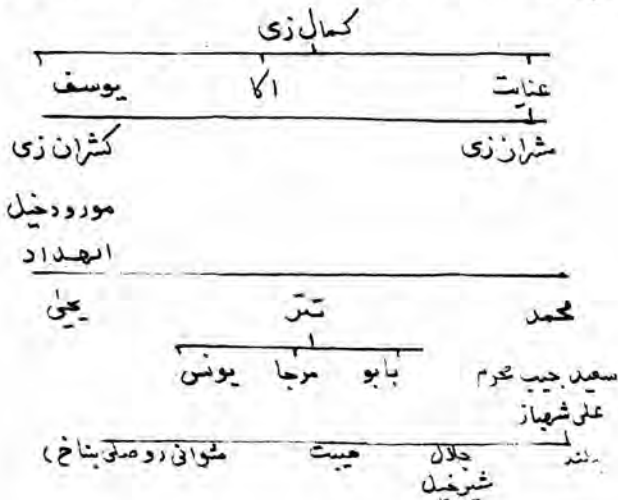 کمال زی
عنایت اکا یوسف
مشران زی کشران زی
مورود خیل
الهداد
محمد تتر یحیٰ
بابو مرجا یونس
سعید حبیب محرم
علی شهباز
جلال هیبت مثوانی (وصلی بناخ)
شیر خیل